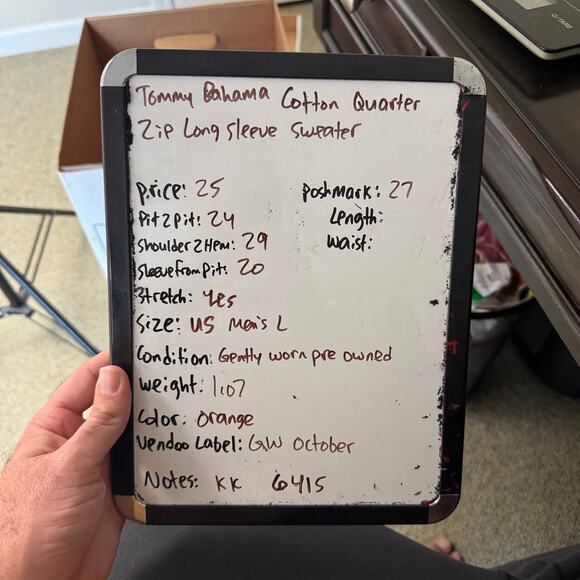 Tommy Bahama Cotton Quarter
Zip Long Sleeve Sweater
Price: 25
Poshmark: 27
Pit2Pit: 24
Length:
Shoulder2Hem: 29
Waist:
Sleeve from Pit: 20
Stretch: Yes
Size: US Men's L
Condition: Gently worn pre owned
Weight: 1.07
Color: Orange
Vendoo Label: GW October
Notes: KK 6415